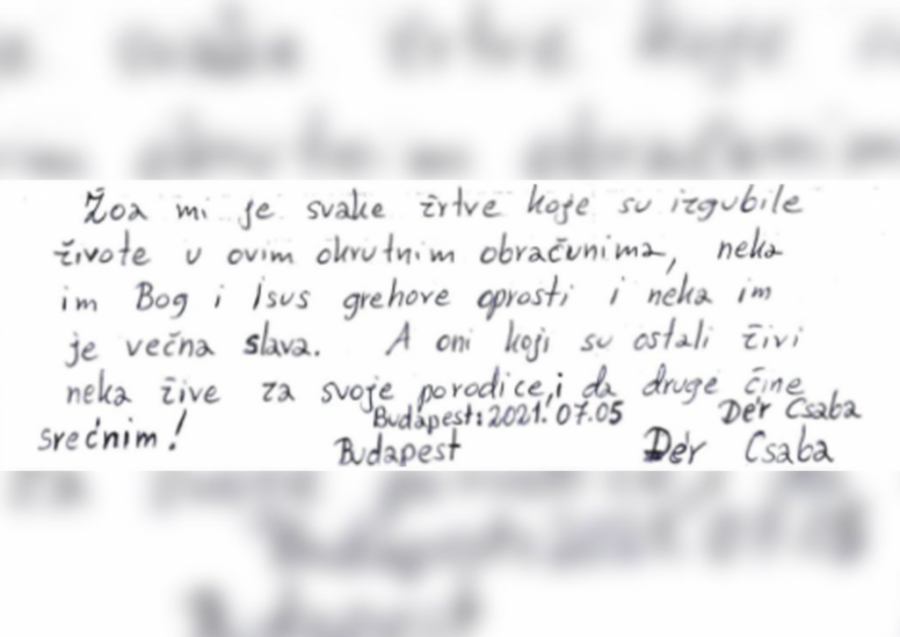 Žoa mi je svake žrtve koje su izgubile
živote u ovim okrutnim obračunima, neka
im Bog i Isus grehove oprosti i neka im
je večna slava. A oni koji su ostali živi
neka žive za svoje porodice, i da druge čine
Budapest: 2021. 07.05 Dér Csaba
srećnim!
Budapest Dér Csaba